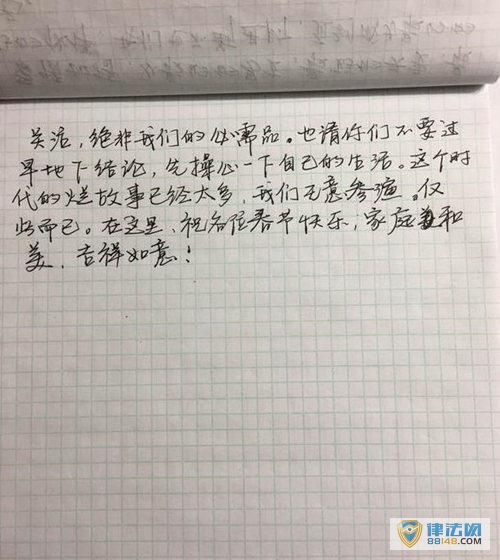 关注，绝非我们的必需品。也请你们不要过
早地下结论，先操心一下自己的生活。这个时
代的烂故事已经太多，我们无意参演。仅
此而已。在这里，祝各位春节快乐，家庭和
美，吉祥如意！
律法网
88148.com